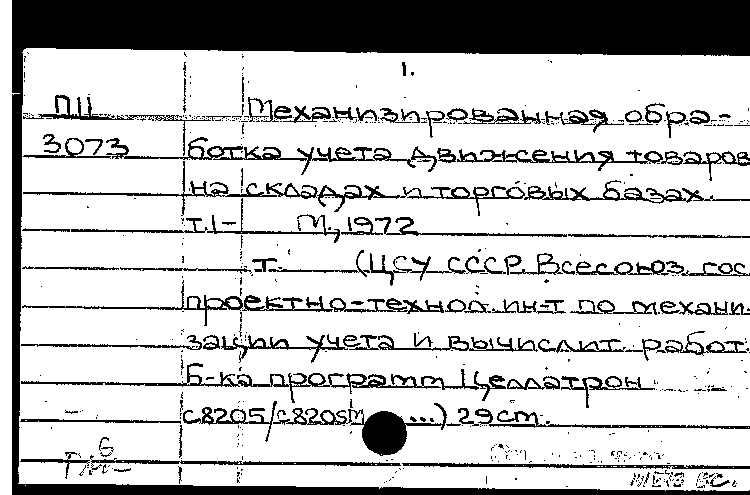 1.
П11 Механизированная обра-
3073 ботка учета движения товаров
на складах и торговых базах.
т.1- М., 1972
т. (ЦСУ СССР. Всесоюз. гос
проектно-технол. ин-т по механи-
зации учета и вычислит. работ.
Б-ка программ Целлатрон
с8205/с8205м ...) 29см.